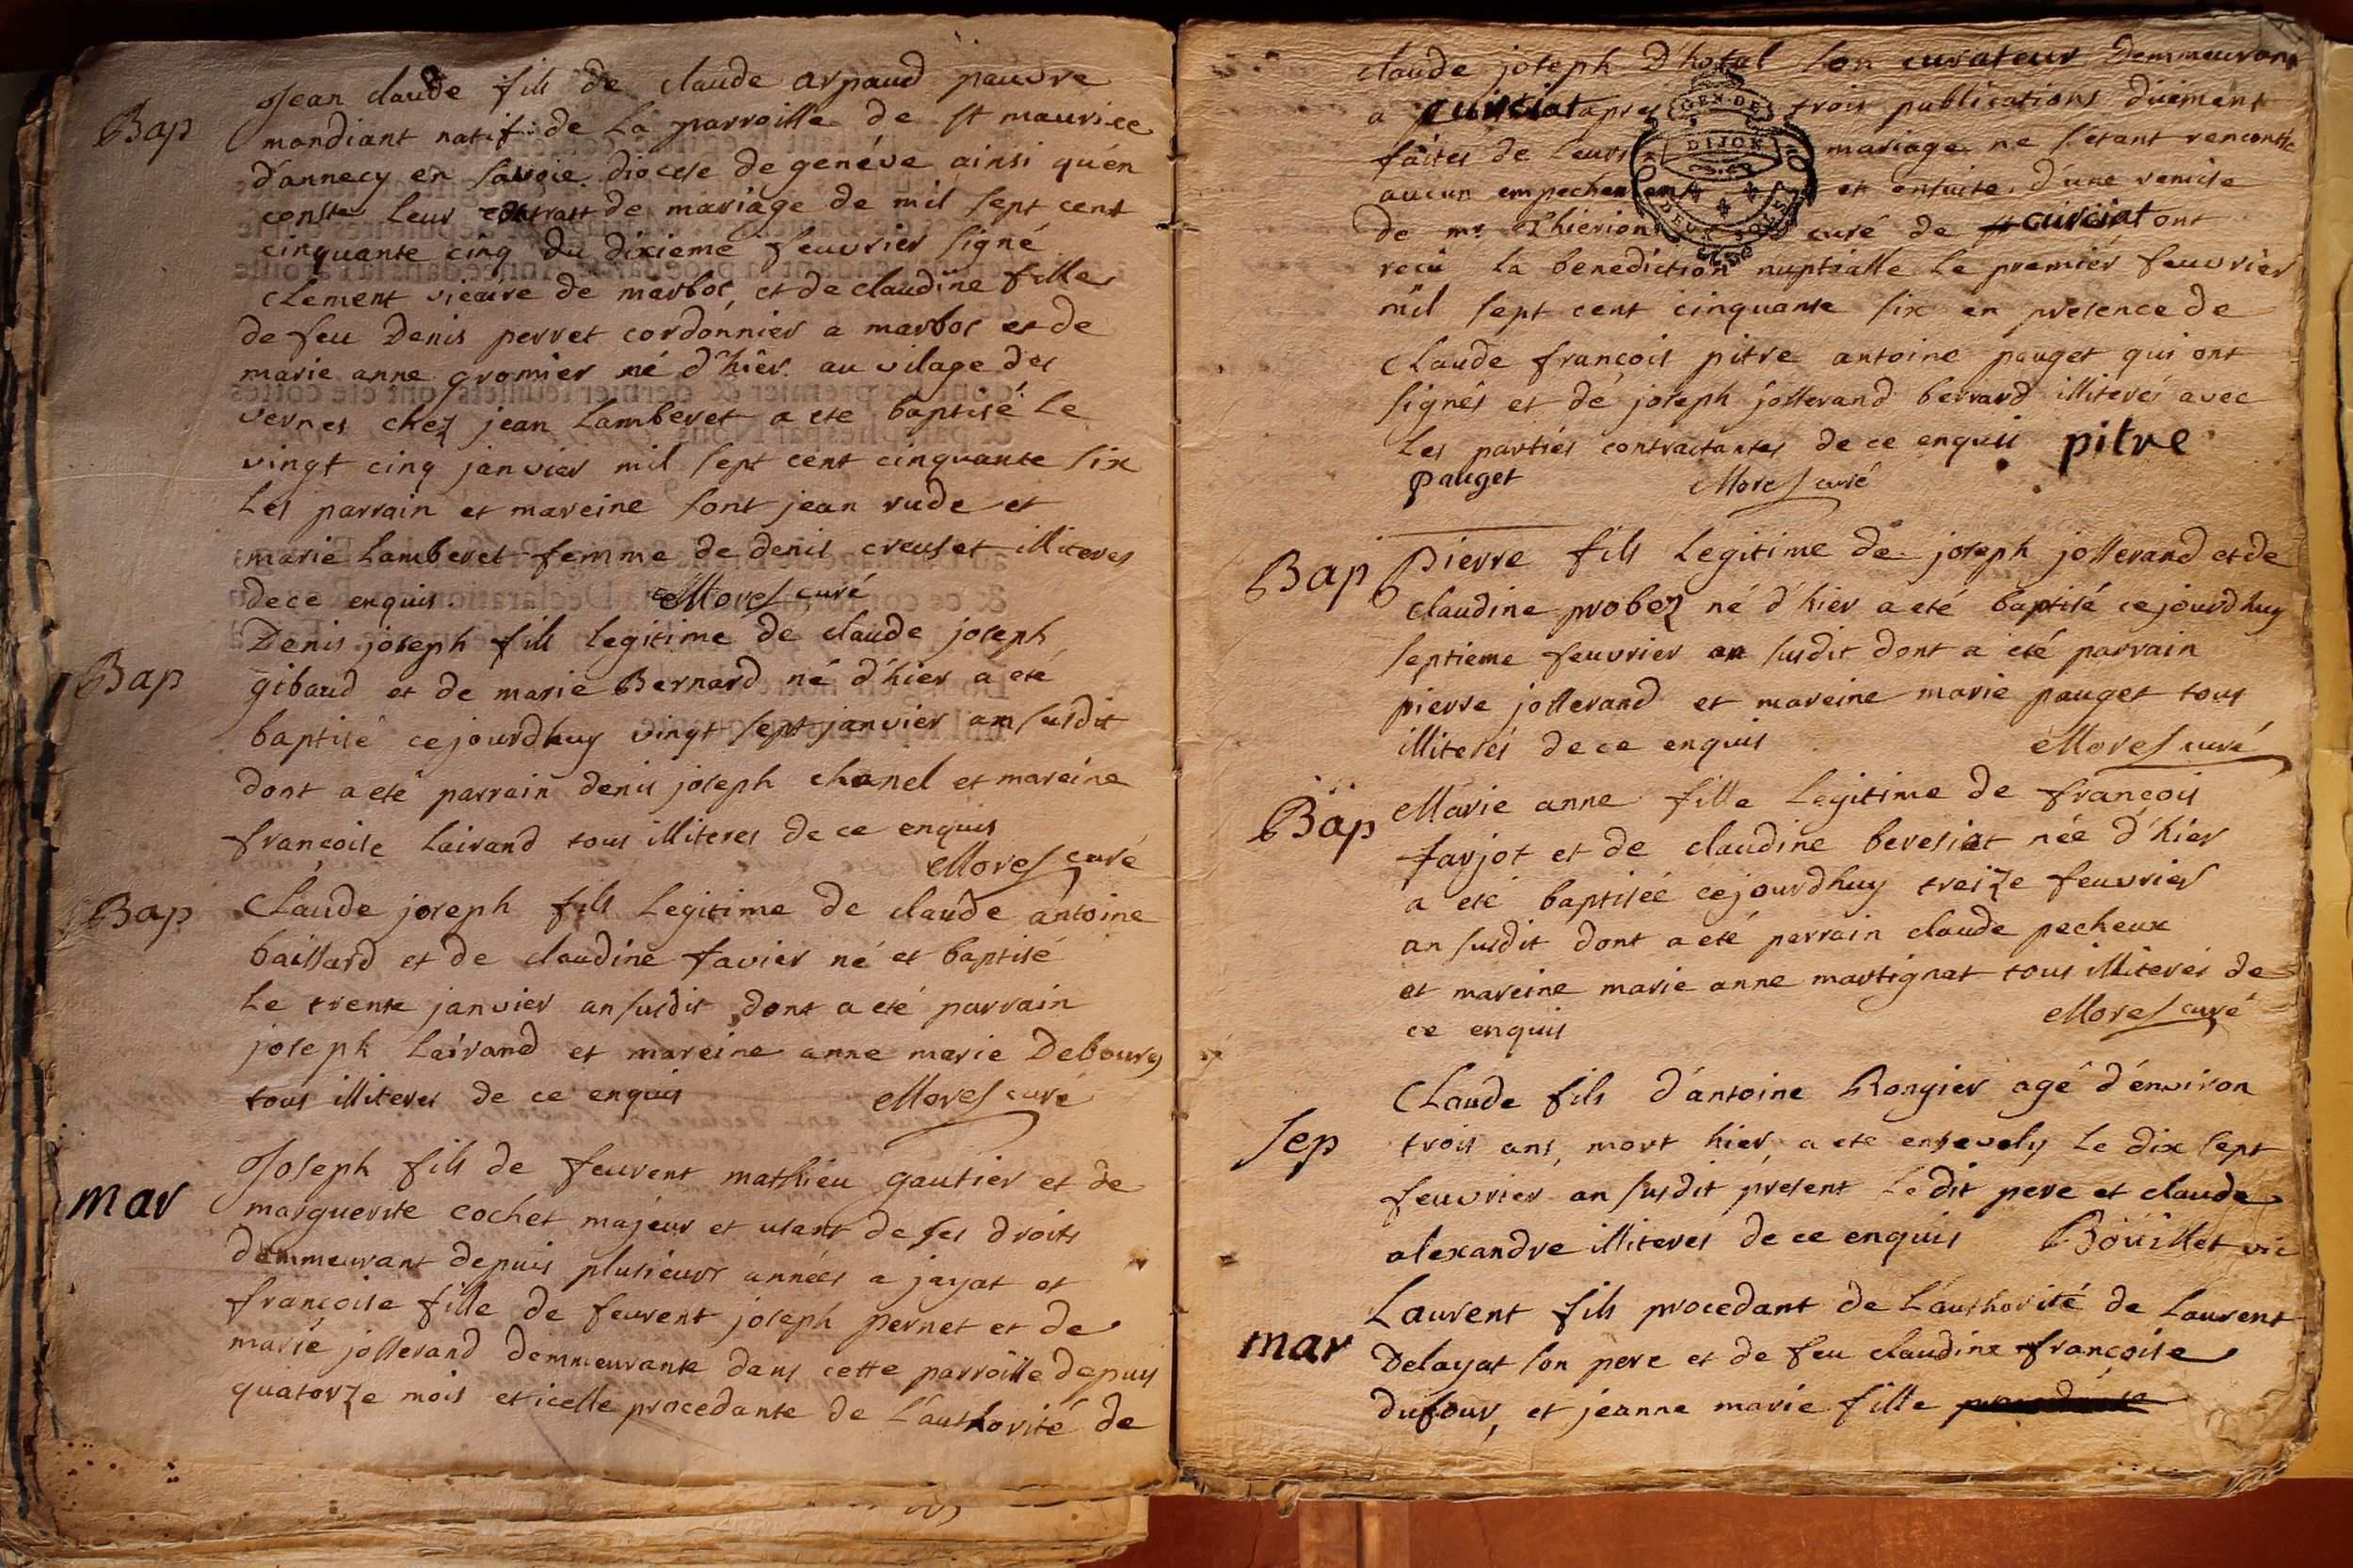 Bap
Jean claude fils de claude arpaud pauvre
mandiant natif de la parroisse de st maurice
d'annecy en savoie diocese de genéve ainsi qu'en
conste leur contratt de mariage de mil sept cent
cinquante cinq du dixieme feuvrier signé
clement vicaire de marboz, et de claudine fille
de feu Denis perret cordonnier a marboz et de
marie anne gromier né d'hier au vilage des
vernes chez jean Lamberet a eté baptisé le
vingt cinq janvier mil sept cent cinquante six
les parrain et mareine sont jean rude et
marie Lamberet femme de denis creuset illiteres
de ce enquis. Morel curé
Bap
Denis joseph fils legitime de claude joseph
gibaud et de marie Bernard né d'hier a eté
baptisé cejourdhuy vingt sept janvier an susdit
dont a eté parrain denis joseph chanel et mareine
francoise Lairand tous illiteres de ce enquis
Morel curé
Bap
Claude joseph fils legitime de claude antoine
baillard et de claudine favier né et baptisé
le trente janvier an susdit dont a eté parrain
joseph Lairand et mareine anne marie Debourg
tous illiteres de ce enquis Morel curé
mar
Joseph fils de feurent mathieu gautier et de
marguerite cochet majeur et usant de ses droits
demmeurant depuis plusieurs années a jayat et
francoise fille de feurent joseph pernet et de
marie jollerand demmeurante dans cette parroisse depuis
quatorze mois et icelle procedante de l'authorité de
claude joseph D'hotal son curateur Demmeurant
a curciat apres GEN DE trois publications duement
faites de leurs DIJON mariage ne s'etant rencontré
aucun empechement et ensuite d'une remise
de mr Thierion DEUX SOLS curé de curciat ont
recu la benediction nuptialle le premier feuvrier
mil sept cent cinquante six en presence de
Claude francois pitre antoine pauget qui ont
signés et de joseph jollerand berrard illiterés avec
les parties contractantes de ce enquis pitre
pauget Morel curé
Bap
Pierre fils legitime de joseph jollerand et de
claudine probez né d'hier a eté baptisé cejourdhuy
septieme feuvrier an susdit dont a eté parrain
pierre jollerand et mareine marie pauget tous
illiterés de ce enquis Morel curé
Bap
Marie anne fille legitime de francois
farjot et de claudine beresiat née d'hier
a eté baptiséé cejourdhuy treize feuvrier
an susdit dont a eté parrain claude pecheux
et mareine marie anne martignat tous illiterés de
ce enquis Morel curé
sep
Claude fils d'antoine Rongier agé d'environ
trois ans, mort hier, a eté ensevely le dix sept
feuvrier an susdit présent le dit pere et claude
alexandre illiterés de ce enquis Boüillet vic
mar
Laurent fils procedant de l'authorité de laurent
Delayat son pere et de feu claudine francoise
dufour, et jeanne marie fille